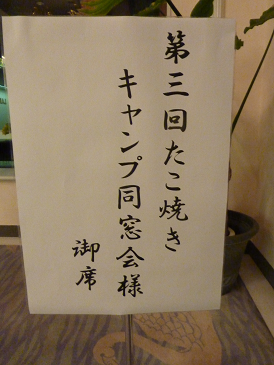 第三回たこ焼き
キャンプ同窓会様
御席